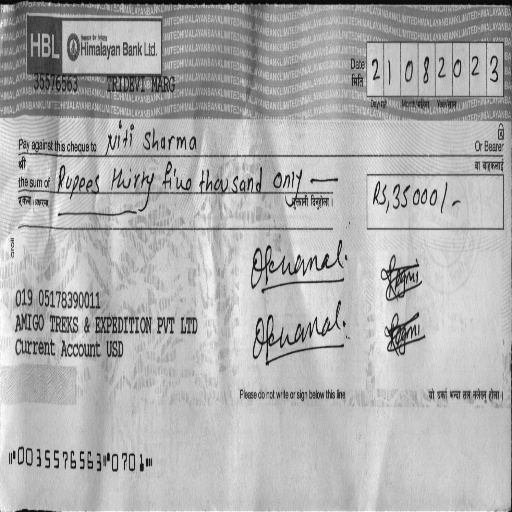 HBL Himalayan Bank Ltd.
35576563 TRIDEVI MARG
Date 21082023
मिति
Pay against this cheque to Niti Sharma Or Bearer
श्री वा बाहकलाई
the sum of Rupees thirty five thousand only — Rs, 35000/-
019 05178390011
AMIGO TREKS & EXPEDITION PVT LTD
Current Account USD
Please do not write or sign below this line
"0035576563"0701"